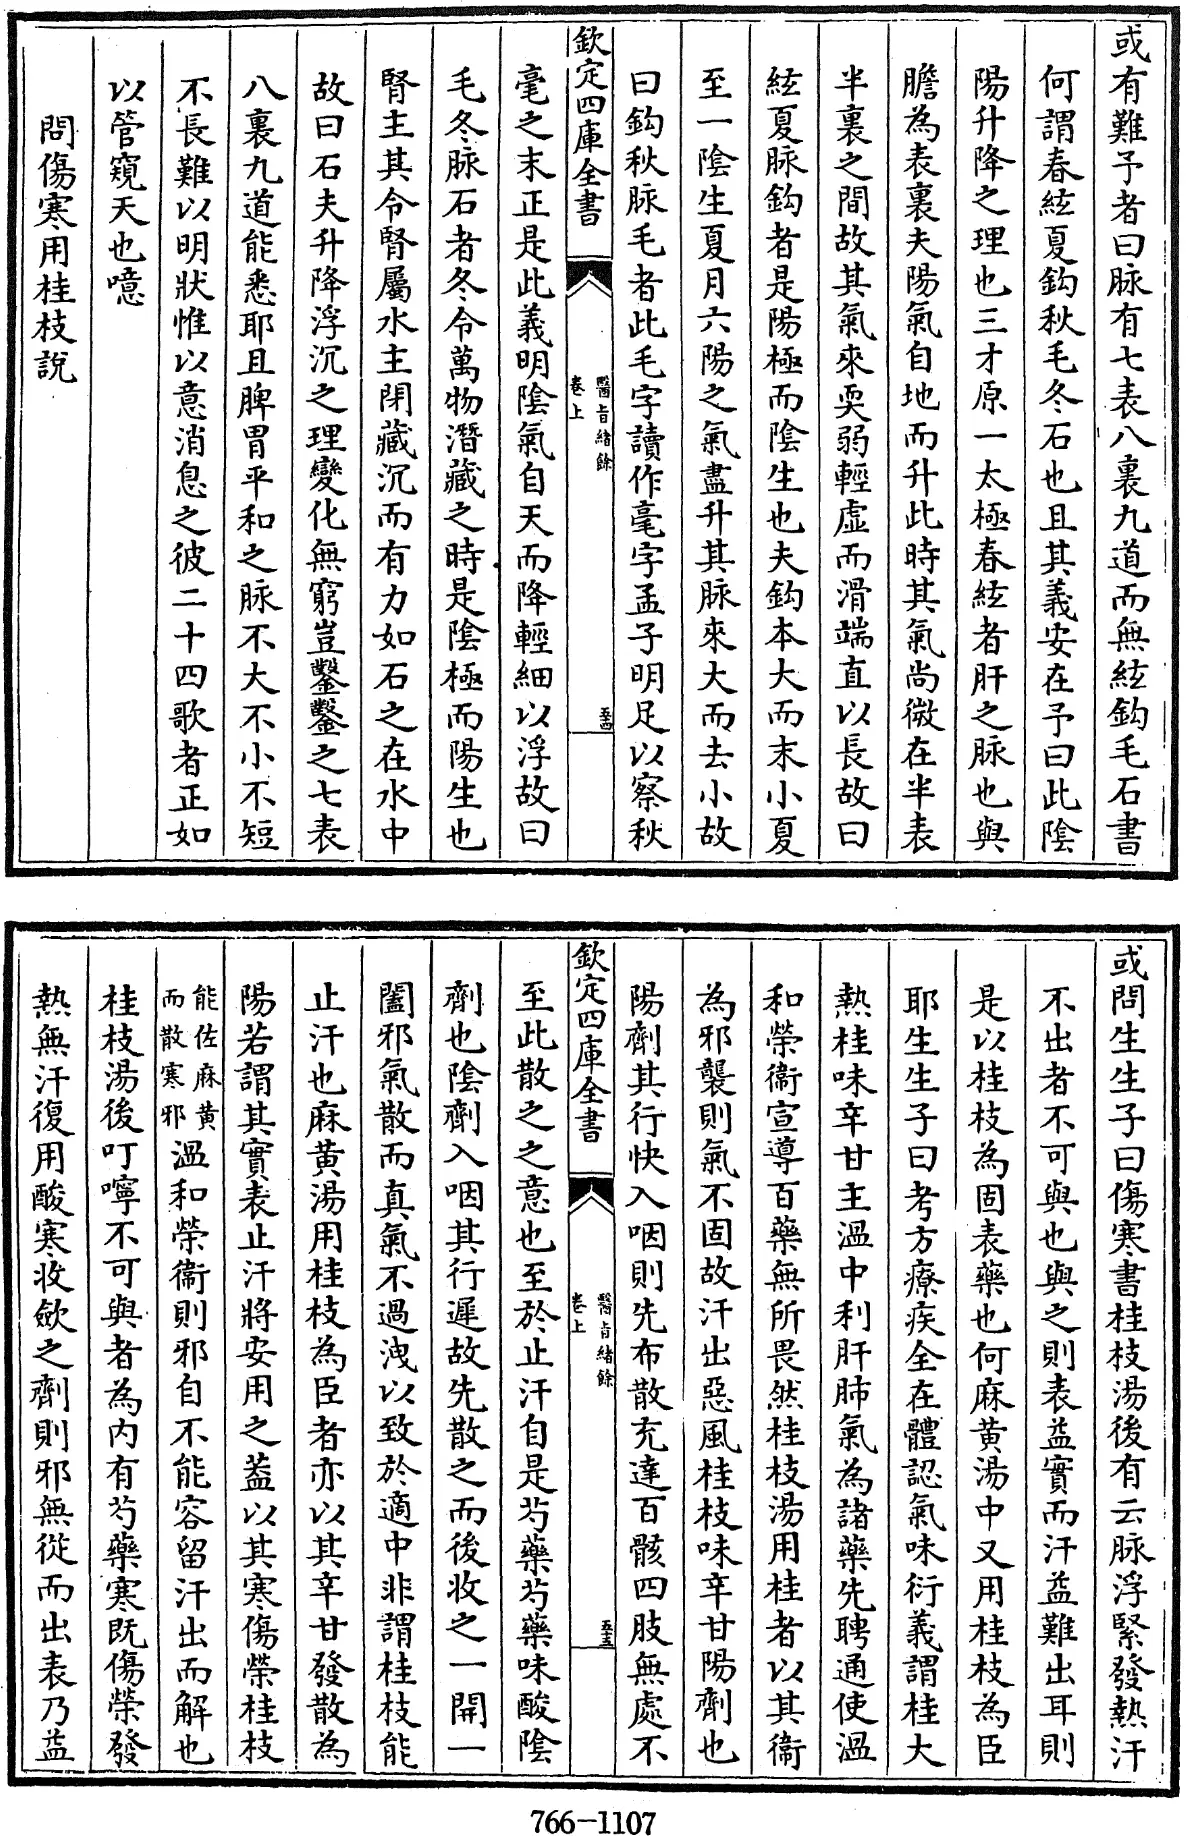 或有難予者曰脉有七表八裏九道而無絃鈎毛石書
何謂春絃夏鈎秋毛冬石也且其義安在予曰此陰
陽升降之理也三才原一太極春絃者肝之脉也與
膽為表裏夫陽氣自地而升此時其氣尚微在半表
半裏之間故其氣來耎弱輕虛而滑端直以長故曰
絃夏脉鈎者是陽極而陰生也夫鈎本大而末小夏
至一陰生夏月六陽之氣盡升其脉來大而去小故
曰鈎秋脉毛者此毛字讀作毫字孟子明足以察秋
欽定四庫全書
醫旨緒餘
卷上
五十四
毫之末正是此義明陰氣自天而降輕細以浮故曰
毛冬脉石者冬令萬物潛藏之時是陰極而陽生也
腎主其令腎屬水主閉藏沉而有力如石之在水中
故曰石夫升降浮沉之理變化無窮豈鑿鑿之七表
八裏九道能悉耶且脾胃平和之脉不大不小不短
不長難以明狀惟以意消息之彼二十四歌者正如
以管窺天也噫
問傷寒用桂枝說
或問生生子曰傷寒書桂枝湯後有云脉浮緊發熱汗
不出者不可與也與之則表益實而汗益難出耳則
是以桂枝為固表藥也何麻黄湯中又用桂枝為臣
耶生生子曰考方療疾全在體認氣味衍義謂桂大
熱桂味辛甘主溫中利肝肺氣為諸藥先聘通使溫
和榮衞宣導百藥無所畏然桂枝湯用桂者以其衞
為邪襲則氣不固故汗出惡風桂枝味辛甘陽劑也
陽劑其行快入咽則先布散充達百骸四肢無處不
欽定四庫全書
醫旨緒餘
卷上
至此散之之意也至於止汗自是芍藥芍藥味酸陰
劑也陰劑入咽其行遲故先散之而後收之一開一
闔邪氣散而真氣不過洩以致於適中非謂桂枝能
止汗也麻黄湯用桂枝為臣者亦以其辛甘發散為
陽若謂其實表止汗將安用之葢以其寒傷榮桂枝
能佐麻黄
而散寒邪
溫和榮衞則邪自不能容留汗出而解也
桂枝湯後叮嚀不可與者為內有芍藥寒既傷榮發
熱無汗復用酸寒收斂之劑則邪無從而出表乃益
766-1107